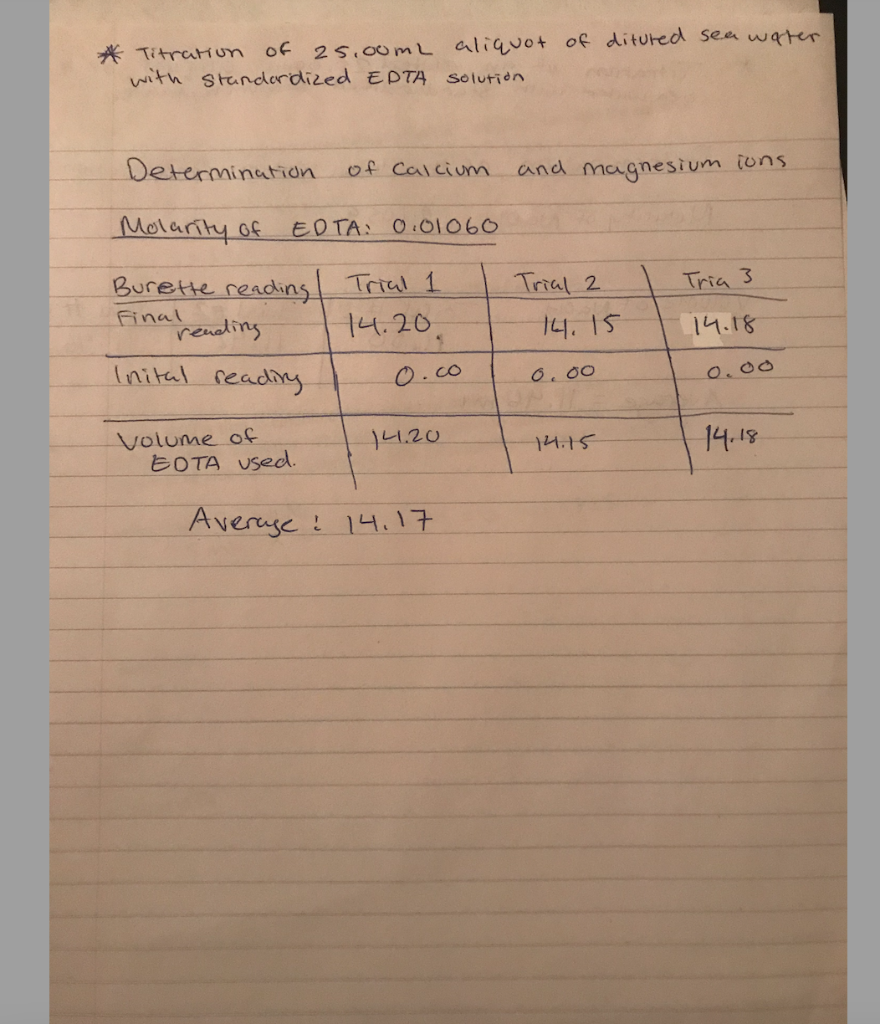 * Titration of 25.00mL aliquot of dituted sea water
with standardized EDTA solution
Determination of calcium and magnesium ions
Molarity of EDTA: 0.01060
Burette reading Trial 1 Trial 2 Tria 3
Final reading 14.20 14.15 14.18
Inital reading 0.00 0.00 0.00
Volume of EDTA used. 14.20 14.15 14.18
Average : 14.17